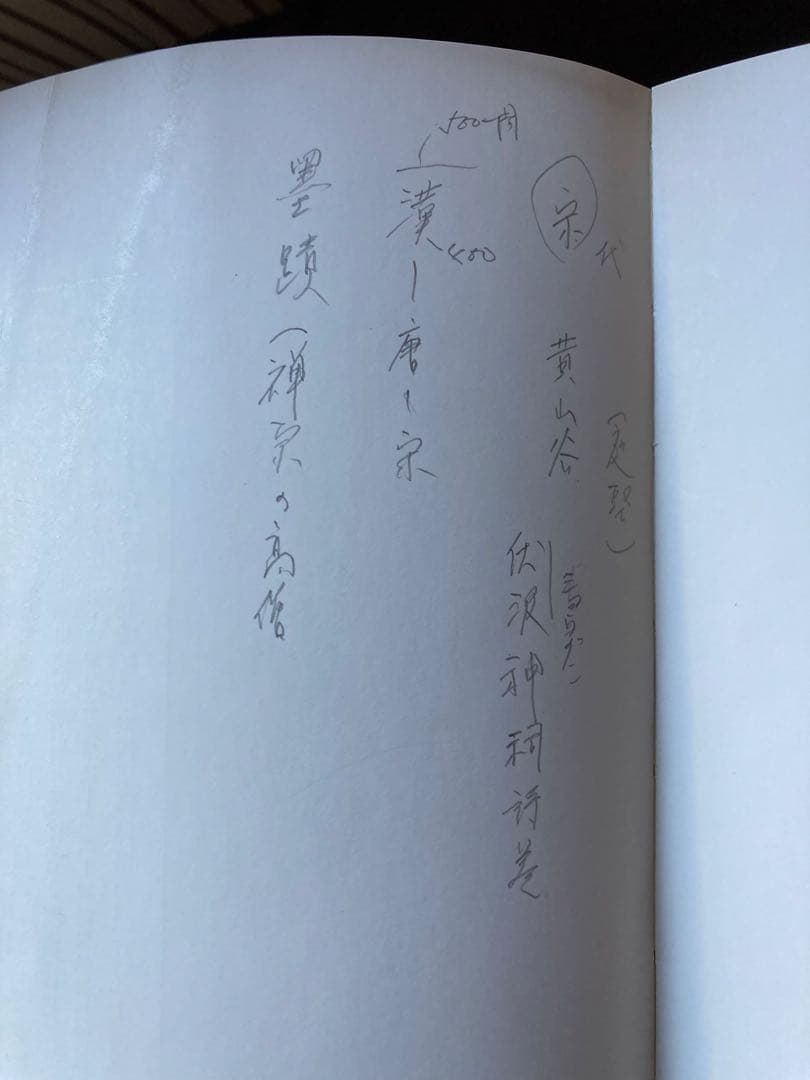 宋代 黄山谷(庭堅)
伏波神祠詩巻
漢ー唐ー宋
400
墨蹟(禅宗の高僧